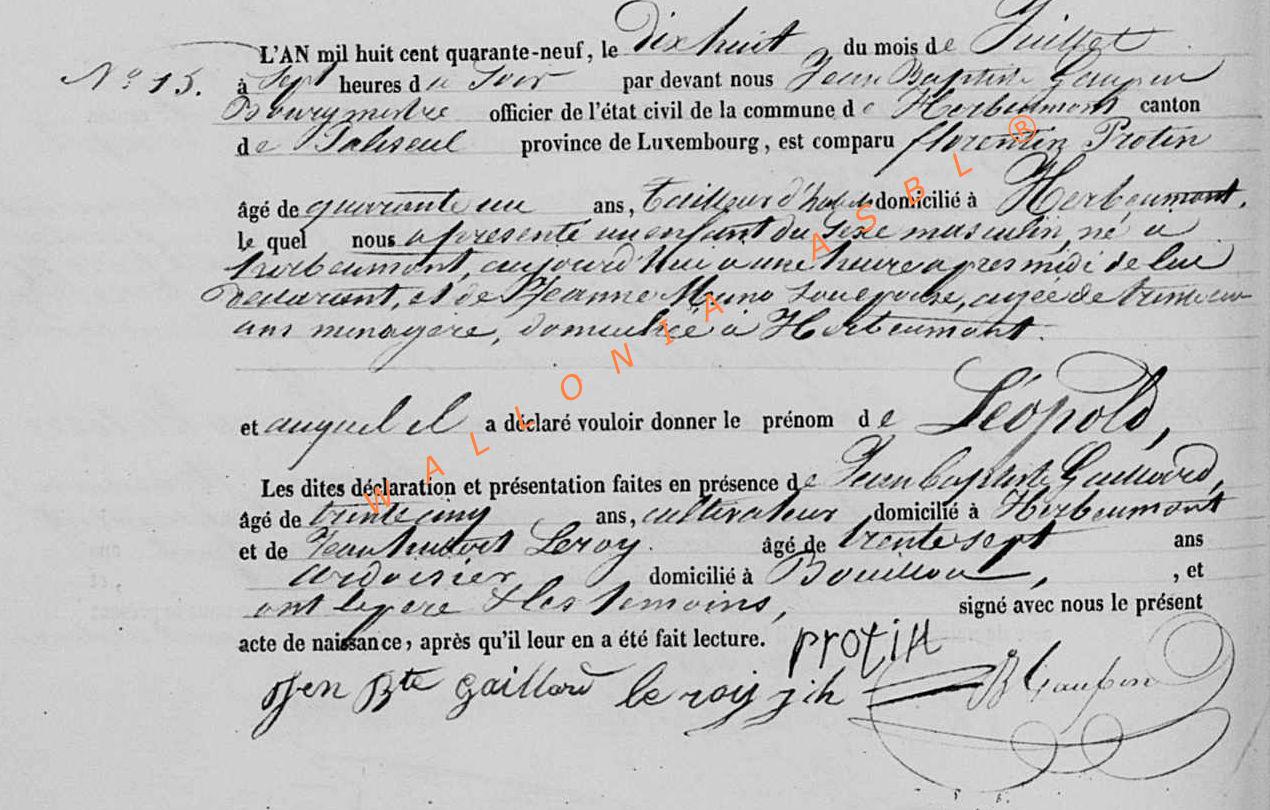 L'AN mil huit cent quarante-neuf, le Dix huit du mois de Juillet
N° 15. à Sept heures du Soir par devant nous Jean Baptiste
Bourgmestre officier de l'état civil de la commune de Herbeumont canton
de Paliseul province de Luxembourg, est comparu florentin Protin
âgé de quarante un ans, tailleur d'habits domicilié à Herbeumont.
le quel nous a présenté un enfant du Sexe masculin, né à
herbeumont, aujourd'hui a une heure apres midi de lui
declarant, et de Jeanne Muno Son epouse, agée de
ans menagere, domiciliée à Herbeumont.
et auquel il a déclaré vouloir donner le prénom de Léopold,
Les dites déclaration et présentation faites en présence de Jean Baptiste Gaillard,
âgé de trente cinq ans, cultivateur, domicilié à Herbeumont
et de Jean hubert Leroy. âgé de trente sept ans
ardoisier, domicilié à Bouillon, , et
ont le pere & les temoins, signé avec nous le présent
acte de naissance, après qu'il leur en a été fait lecture. protin
Jen Bte gaillard le roy j h
WALLONIA ASBL ®